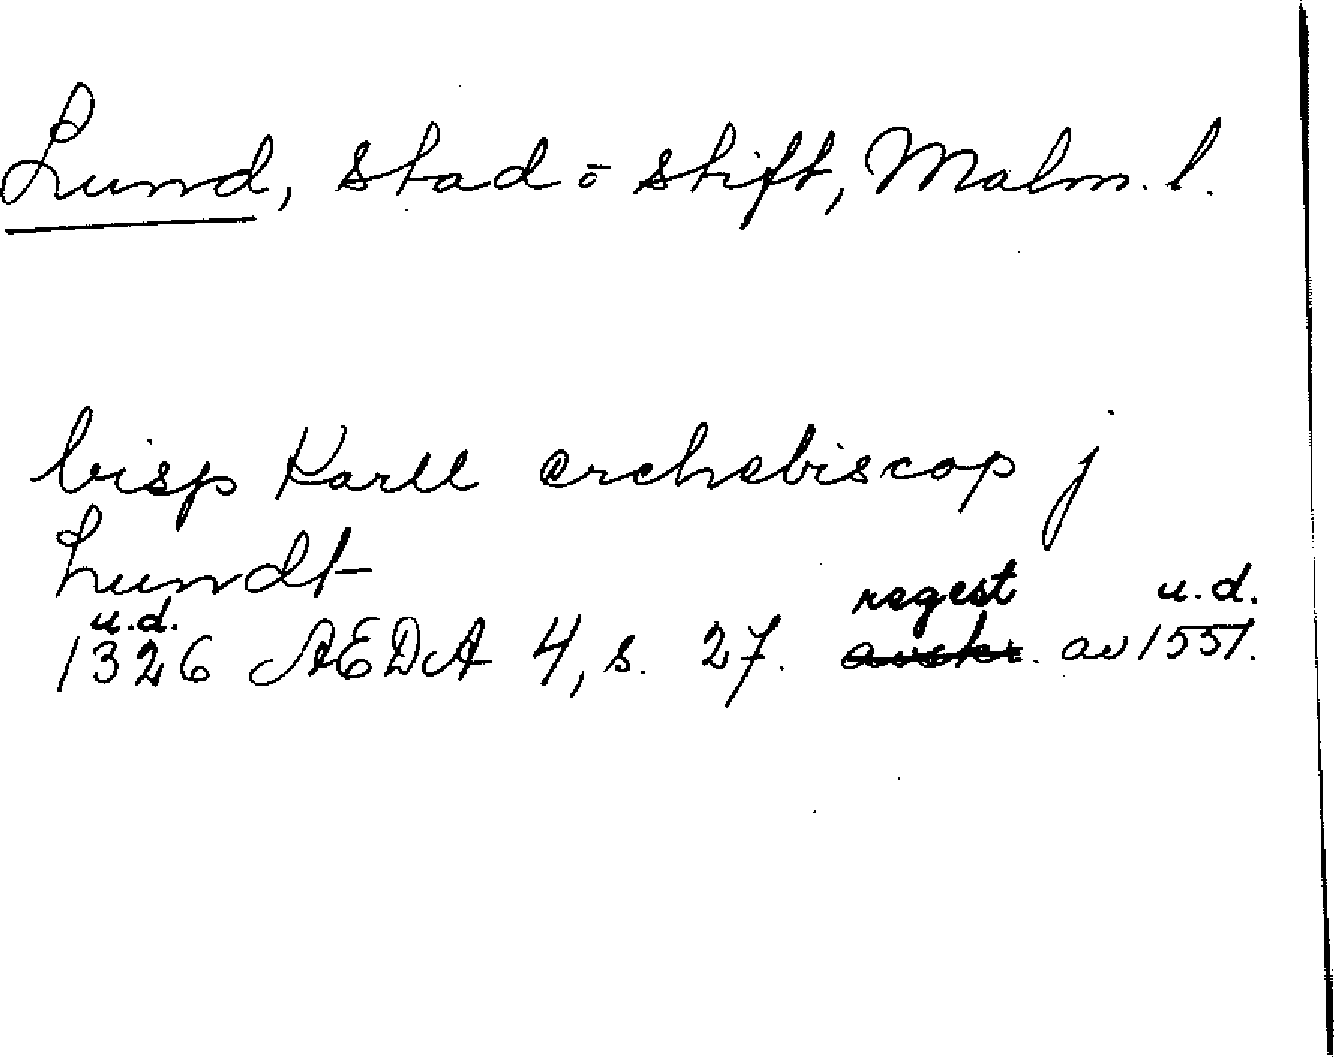 Lund, stad o stift, Malm. l.
bisp Karll erchebiscop j
Lundt
u.d. regest u.d.
1326 AEDA 4, s. 27. avskr. av 1551.